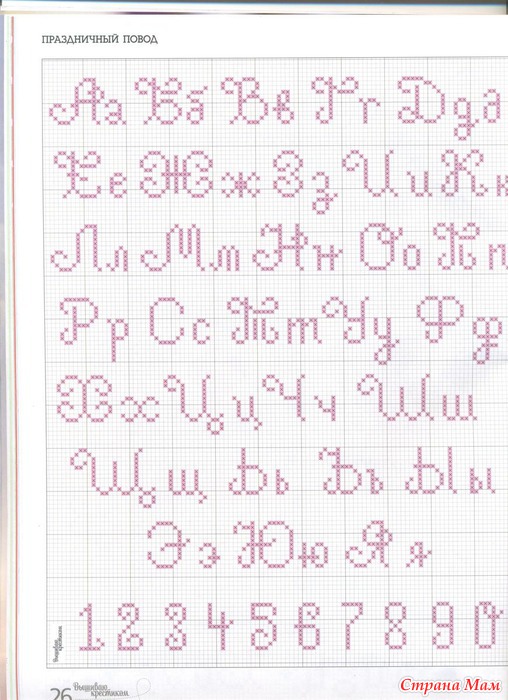 ПРАЗДНИЧНЫЙ ПОВОД
Аа Бб Вв Гг Ддд
Ее Жж Зз Ии Кк
Лл Мм Нн Оо Пп
Рр Сс Тт Уу Фф
Хх Цц Чч Шш
Щщ Ьь Ъъ Ыы
Ээ Юю Яя
1 2 3 4 5 6 7 8 9 0
Вышиваю крестиком
26 Вышиваю крестиком
Страна Мам